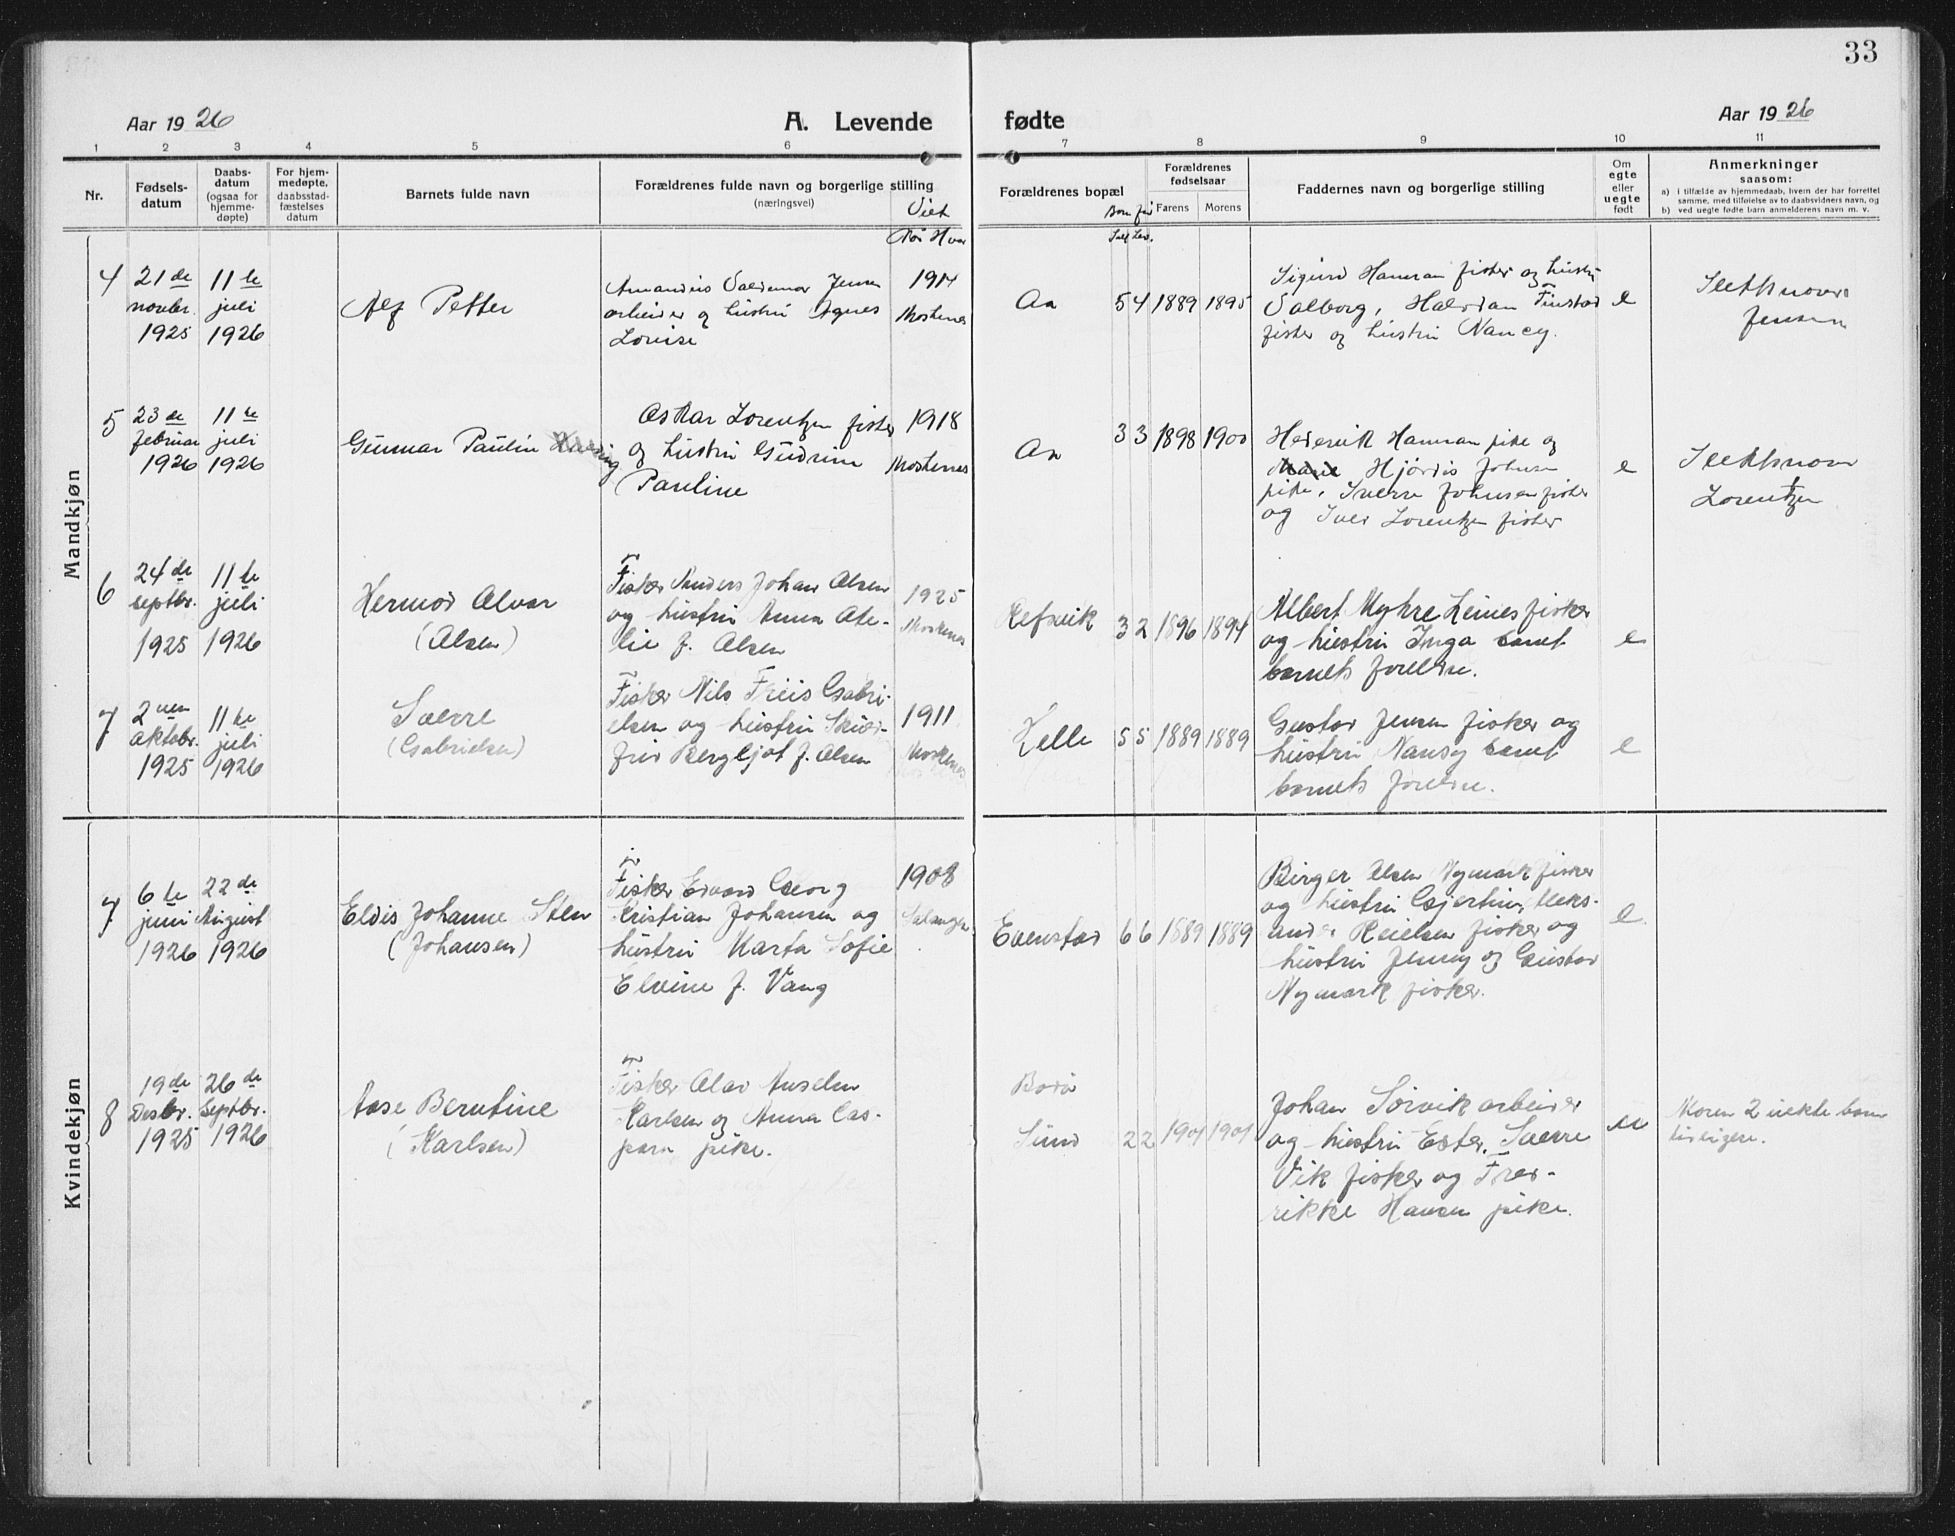 33
Aar 1926
A. Levende
fødte
Aar 1926
1 2 3 4 5 6 7 8 9 10 11
Nr.
Fødsels-
datum
Daabs-
datum
(ogsaa for
hjemme-
døpte)
For hjem-
medøpte,
daabsstad-
fæstelses
datum
Barnets fulde navn
Forældrenes fulde navn og borgerlige stilling
(næringsvei)
Viet
Naar Hvor
Forældrenes bopæl
Forældrenes
fødselsaar
Farens Morens
Faddernes navn og borgerlige stilling
Om
egte
eller
uegte
født
Anmerkninger
saasom:
a) i tilfælde av hjemmedaab, hvem der har forrettet
samme, med tilføielse av to daabsvidners navn, og
b) ved uegte fødte barn anmelderens navn m. v.
Mandkjøn
4
21 de
novbr.
1925
11 te
juli
1926
Alf Petter
Amandus Valdemar Jensen
arbeider og hustru Agnes
Lovise
1914
Moskenes
Aa
5 4
1889 1895
Sigurd Hansen fisker og hustru
Valborg, Halvdan Finstad
fisker og hustru Nancy.
e
Slektsnavn
Jensen
5
23 de
februar
1926
11 te
juli
1926
Gunnar Paulin
Oskar Lorentzen fisker
og hustru Gudrun
Pauline
1918
Moskenes
Aa
3 3
1898 1900
Hansen pike og
Hjørdis Johnsen
pike, Sverre Johnsen fisker
og Iver Lorentzen fisker
e
Slektsnavn
Lorentzen
6
24 de
septbr.
1925
11 te
juli
1926
Hermod Alvar
(Olsen)
Fisker Anders Johan Olsen
og hustru Anna Ote-
lie f. Olsen
1925
Moskenes
Refsvik
3 2
1896 1894
Albert Myhre Leines fisker
og hustru Inga samt
barnets foreldre.
e
7
2 nen
oktobr.
1925
11 te
juli
1926
Sverre
(Gabrielsen)
Fisker Nils Friis Gabri-
elsen og hustru Sigur-
frid Bergljot f. Olsen
1911
Moskenes
Helle
5 5
1889 1889
Gustav Jensen fisker og
hustru Nansy samt
barnets foreldre.
e
Kvindekjøn
7
6 te
juni
1926
22 de
August
1926
Eldis Johanne Sten
(Johansen)
Fisker Edvard Georg
Kristian Johansen og
hustru Marta Sofie
Elvine f. Vang
1908
Salangen
Evenstad
6 6
1889 1889
Birger Olsen Nymark fisker
og hustru Gjertine, Aleks-
ander Reielsen fisker og
hustru Jenny og Gustav
Nymark fisker.
e
8
19 de
Desbr.
1925
26 de
Septbr.
1926
Aase Berntine
(Karlsen)
Fisker Olav Anselm
Karlsen og Anna Cas-
para pike.
Bodø
Sund
2 2
1901 1901
Johan Sørvik arbeider
og hustru Ester, Sverre
Vik fisker og Fred-
rikke Hansen pike.
u
Moren 2 uekte barn
tidligere.